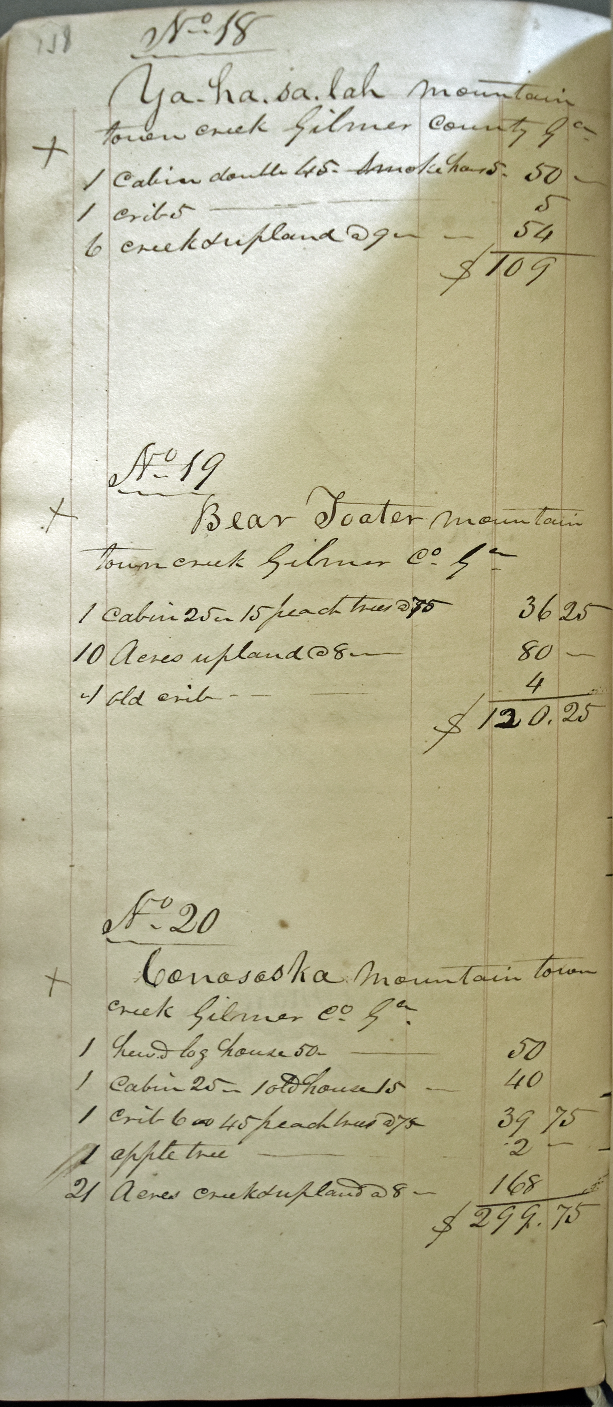 No 18
Ya-ha.sa.lah mountain
town creek Gilmer County Ga
+
1 cabin double 45- Smoke hous 5- 50 -
1 crib 5 5
6 creek & upland @ 9 - 54
$ 109
No 19
+
Bear Toater mountain
town creek Gilmer Co Ga
1 cabin 25 - 15 peach trees @ 75 36 25
10 Acres upland @ 8 - 80 -
1 old crib - 4
$ 120.25
No 20
+
Conososka mountain town
creek Gilmer Co Ga
1 hewd log house 50 - 50
1 cabin 25 - 1 old house 15 - 40
1 crib 6 - 45 peach trees @ 75 39 75
1 apple tree 2 -
21 Acres creek & upland @ 8 - 168
$ 299.75